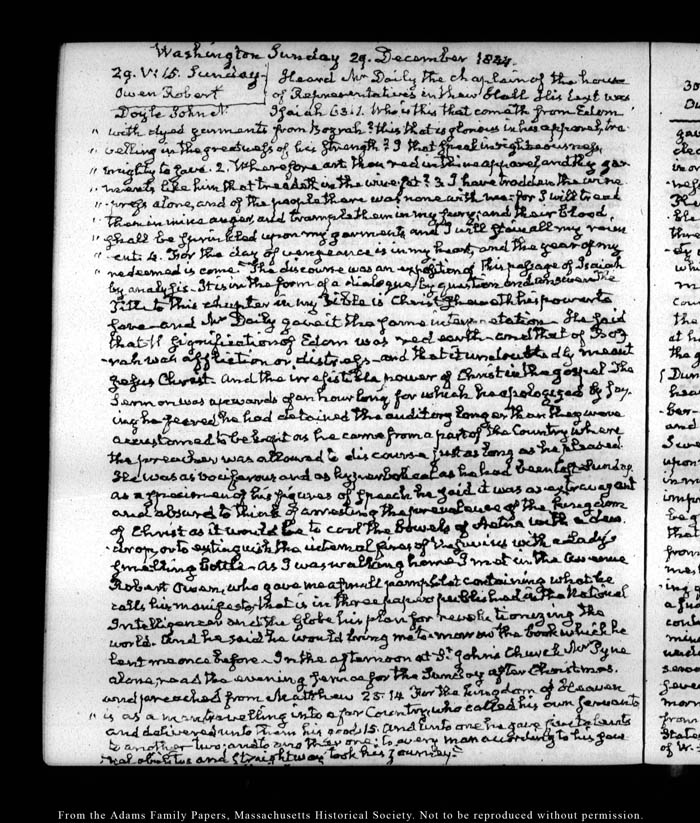 Washington Sunday 29. December 1844.
29. V:15. Sunday
Owen Robert
Doyle John
Heard Mr Daily the chaplain of the house
of Representatives in their Hall His text was
Isaiah 63:1. Who is this that cometh from Edom
" with dyed garments from Bozrah? this that is glorious in his apparel, tra-
" velling in the greatness of his strength? I that speak in righteousness,
" mighty to save. 2. Wherefore art thou red in thine apparel and thy gar
" ments like him that treadeth in the wine fat? 3. I have trodden the wine
" press alone, and of the people there was none with me: for I will tread
" them in mine anger, and trample them in my fury: and their blood,
" shall be sprinkled upon my garments, and I will stain all my raim
" ent. 4. For the day of vengeance is in my heart, and the year of my
" redeemed is come. The discourse was an exposition of this passage of Isaiah
by analysis. It is in the form of a dialogue, by question and answer. The
Title to this chapter in my Bible is Christ sheweth his power to
save and Mr Daily gave it the same interpretation. He said
that the signification of Edom was red earth and that of Boz
rah was affliction or distress and that it undoubtedly meant
Jesus Christ. And the irresistible power of Christ in the gospel. The
Sermon was upwards of an hour long for which he apologized by say-
ing he feared he had detained the auditory longer than they were
accustomed to be kept as he came from a part of the Country where
the preacher was allowed to discourse just as long as he pleased.
He was as vociferous and as hyperbolical as he had been last Sunday.
as a specimen of his figures of speech he said it was as extravagant
and absurd to think of arresting the prevalence of the kingdom
of Christ as it would be to cool the Bowels of Aetna with a dew
drop, or to extinguish the internal fires of Vesuvius with a Lady's
smelling bottle. As I was walking home I met in the Avenue
Robert Owen, who gave me a small pamphlet containing what he
calls his manifesto, that is in three papers published in the National
Intelligencer and the Globe his plan for revolutionizing the
world. And he said he would bring me to-morrow the book which he
lent me once before. In the afternoon at St. John's Church Mr Pyne
alone, read the evening service for the Sunday after Christmas.
and preached from Matthew 25:14. For the kingdom of Heaven
" is as a man travelling into a far Country, who called his own servants
and delivered unto them his goods 15. And unto one he gave five talents
to another two: and to another one: to every man according to his seve
ral abilities and straightway took his journey.
From the Adams Family Papers, Massachusetts Historical Society. Not to be reproduced without permission.